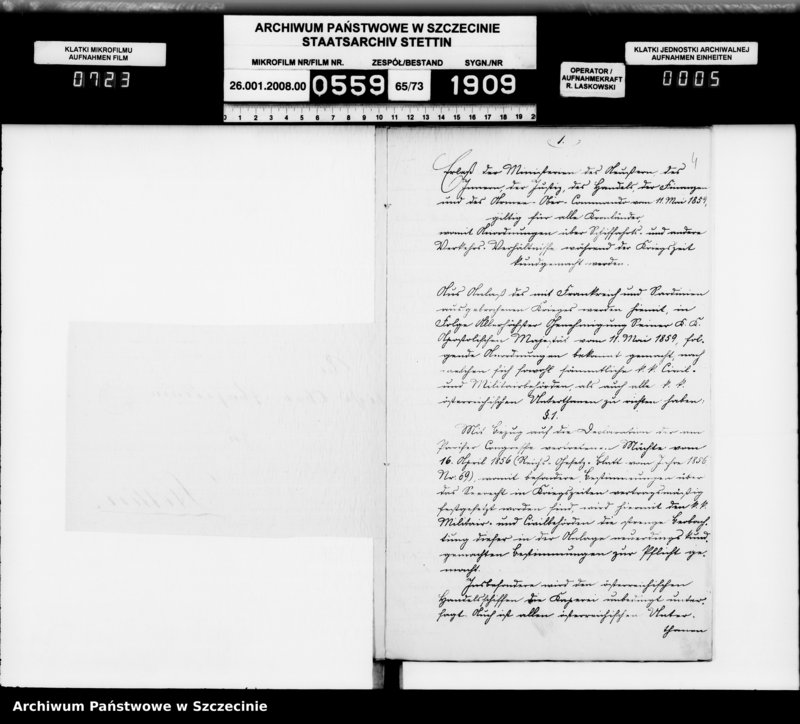 ARCHIWUM PAŃSTWOWE W SZCZECINIE
STAATSARCHIV STETTIN
KLATKI MIKROFILMU
AUFNAHMEN FILM
0723
MIKROFILM NR/FILM NR. ZESPÓŁ/BESTAND SYGN./NR
26.001.2008.00 0559 65/73 1909
OPERATOR /
AUFNAHMEKRAFT
R. LASKOWSKI
KLATKI JEDNOSTKI ARCHIWALNEJ
AUFNAHMEN EINHEITEN
0005
0 1 2 3 4 5 6 7 8 9 10 11 12 13 14 15 16 17 18 19 20
1.
4
Erlaß der Ministerien des Aeußern, des
Innern, der Justiz, des Handels, der Finanzen
und des Armee-Ober-Commando vom 11. Mai 1859,
giltig für alle Kronländer,
womit Anordnungen über Schiffahrts- und andere
Verkehrs-Verhältnisse während der Kriegszeit
kundgemacht werden.
Aus Anlaß des mit Frankreich und Sardinien
ausgebrochenen Krieges werden hiemit, in
Folge Allerhöchster Genehmigung Seiner K. K.
Apostolischen Majestät vom 11. Mai 1859, fol-
gende Anordnungen bekannt gemacht, nach
welchen sich sowohl sämmtliche k. k. Civil-
und Militairbehörden, als auch alle k. k.
österreichischen Unterthanen zu richten haben:
§.1.
Mit Bezug auf die Declaration der am
Pariser Congresse vertretenen Mächte vom
16. April 1856 (Reichs-Gesetz-Blatt vom Jahre 1856
Nr. 69), womit besondere Bestimmungen über
das Seerecht in Kriegszeiten vertragsmäßig
festgesetzt worden sind, wird hiermit den k. k.
Militair- und Civilbehörden die strenge Beobach-
tung dieser in der Anlage neuerdings kund
gemachten Bestimmungen zur Pflicht ge-
macht.
Insbesondere wird den österreichischen
Handelsschiffen die Kaperei unbedingt unter-
sagt. Auch ist allen österreichischen Unter-
thanen
Archiwum Państwowe w Szczecinie